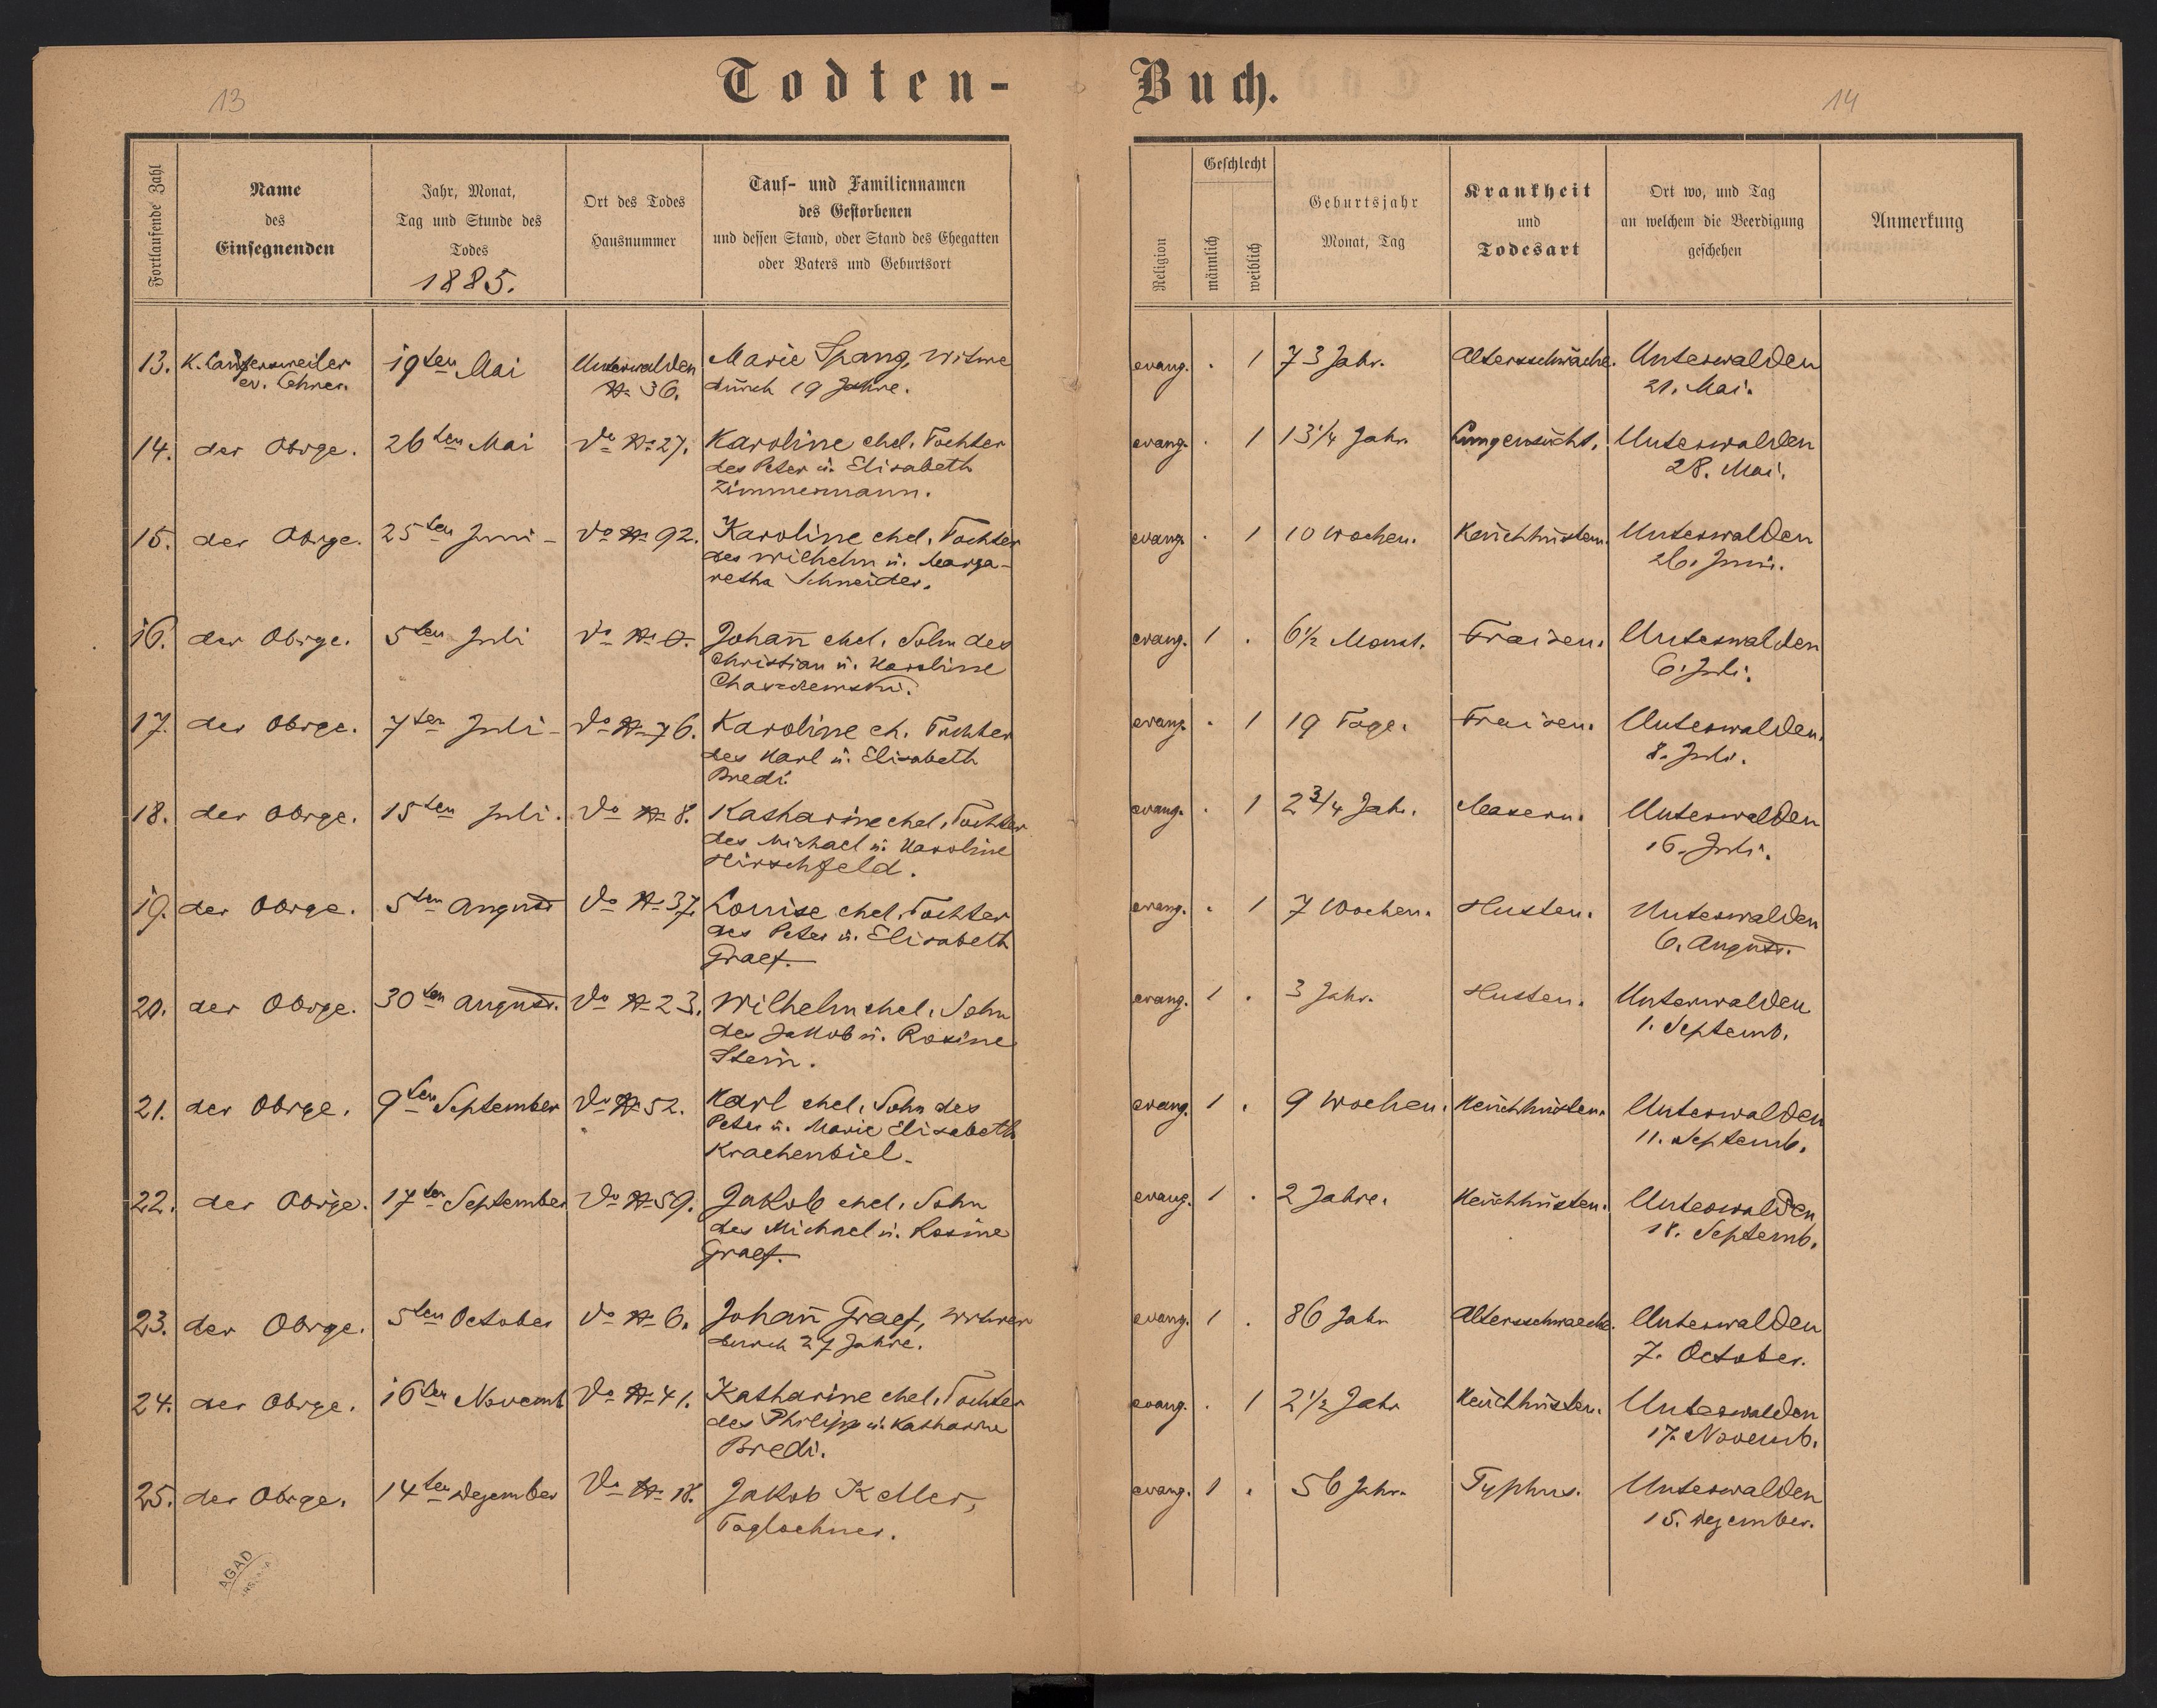 13
Todten-
Buch.
14
Fortlaufende Zahl
Name
des
Einsegnenden
Jahr, Monat,
Tag und Stunde des
Todes
1885.
Ort des Todes
Hausnummer
Tauf- und Familiennamen
des Gestorbenen
und dessen Stand, oder Stand des Ehegatten
oder Vaters und Geburtsort
Religion
Geschlecht
männlich
weiblich
Geburtsjahr
Monat, Tag
Krankheit
und
Todesart
Ort wo, und Tag
an welchem die Beerdigung
geschehen
Anmerkung
13. K. Lautersweiler 19ten Mai Unterwalden Marie Spang, Witwe evang. . 1 73 Jahr. Altersschwäche. Unterwalden
ev. Lehrer. № 36. durch 19 Jahre. 21. Mai.
14. der Obige. 26ten Mai do № 27. Karoline ehel. Tochter evang. . 1 13 1/4 Jahr Lungensücht. Unterwalden
des Peter u. Elisabeth 28. Mai.
Zimmermann.
15. der Obige. 25ten Juni - do № 92. Karoline ehel. Tochter evang. . 1 10 Wochen. Keuchhusten. Unterwalden
des Wilhelm u. Marga- 26. Juni.
retha Schneider.
16. der Obige. 5ten Juli do № Johann ehel. Sohn des evang. 1 . 6 1/2 Monat. Fraisen. Unterwalden
Christian u. Karoline 6. Juli.
17. der Obige. 7ten Juli - do № 76. Karoline eh. Tochter evang. . 1 19 Tage. Fraisen. Unterwalden.
des Karl u. Elisabeth 8. Juli.
Bredi.
18. der Obige. 15ten Juli. do № 8. Katharine ehel. Tochter evang. . 1 2 3/4 Jahr. Masern. Unterwalden
des Michael u. Karoline 16. Juli.
Hirschfeld.
19. der Obige. 5ten August do № 37. Louise ehel. Tochter evang. . 1 7 Wochen. Husten. Unterwalden
des Peter u. Elisabeth 6. August.
Graef.
20. der Obige. 30ten August. do № 23. Wilhelm ehel. Sohn evang. 1 . 3 Jahr. Husten. Unterwalden
des Jakob u. Rosine 1. Septemb.
Stein.
21. der Obige. 9ten September do № 52. Karl ehel. Sohn des evang. 1 . 9 Wochen. Keuchhusten. Unterwalden
Peter u. Marie Elisabeth 11. Septemb.
Krachenbiel.
22. der Obige. 17ten September do № 59. Jakob ehel. Sohn evang. 1 . 2 Jahre. Keuchhusten. Unterwalden
des Michael u. Rosine 18. Septemb.
Graef.
23. der Obige. 5ten October do № 6. Johann Graef, Witwer evang. 1 . 86 Jahr Altersschwaeche. Unterwalden
durch 27 Jahre. 7. October.
24. der Obige. 16ten Novemb do № 41. Katharine ehel. Tochter evang. . 1 2 1/2 Jahr Keuchhusten. Unterwalden
des Philipp u. Katharine 17. Novemb.
Bredi.
25. der Obige. 14ten Dezember do № 18. Jakob Keller, evang. 1 . 56 Jahr. Typhus. Unterwalden
Tagloehner. 15. Dezember.
AGAD